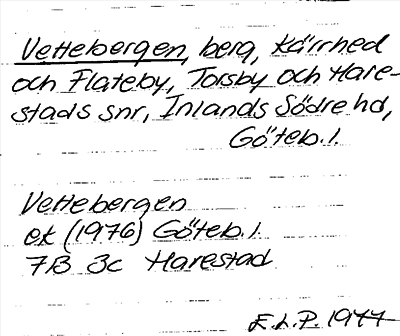 Vettebergen, berg, Kärrhed
och Flateby, Torsby och Hare-
stads snr, Inlands Södre hd,
Göteb. l.
Vettebergen
ek (1976) Göteb. l.
7B 3c Harestad
E.L.P. 1977